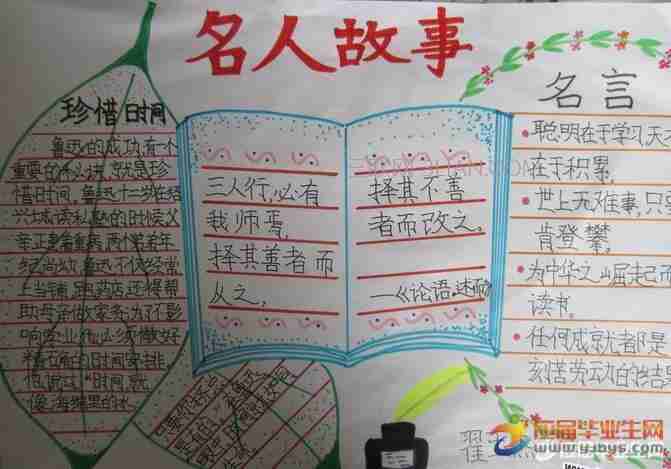 名人故事
珍惜时间
鲁迅的成功,有一个
重要的秘诀,就是珍
惜时间,鲁迅十二岁在绍
兴城读私塾的时候,父
亲正患着重病,两个弟弟年
纪尚幼,鲁迅不仅经常
上当铺,跑药店,还得帮
助母亲做家务,为了不影
响学业,他必须做好
精确的时间安排,
他说过"时间,就
像海绵里的水
三人行,必有
我师焉,
择其善者而
从之,
择其不善
者而改之。
—《论语·述而》
名言
聪明在于学习,天
在于积累,
世上无难事,只要
肯登攀,
为中华之崛起而
读书。
任何成就都是
刻苦劳动的结果
翟
应届毕业生网
www.yjbys.com